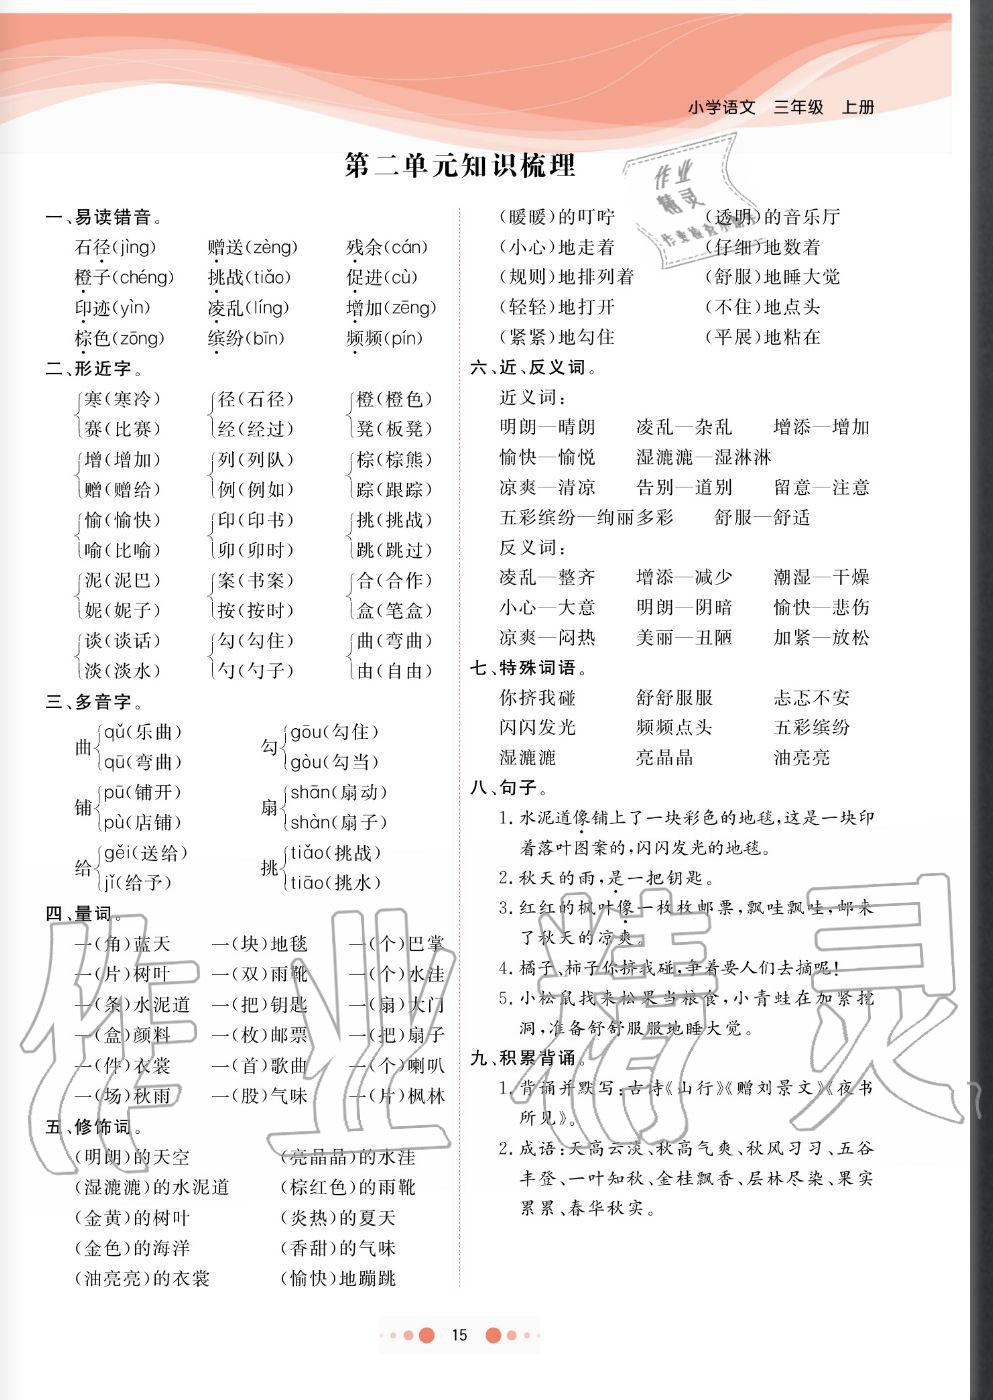 小学语文 三年级 上册
第二单元知识梳理
一、易读错音。
石径(jìng) 赠送(zèng) 残余(cán)
橙子(chéng) 挑战(tiǎo) 促进(cù)
印迹(yìn) 凌乱(líng) 增加(zēng)
棕色(zōng) 缤纷(bīn) 频频(pín)
二、形近字。
寒(寒冷) 径(石径) 橙(橙色)
赛(比赛) 经(经过) 凳(板凳)
增(增加) 列(列队) 棕(棕熊)
赠(赠给) 例(例如) 踪(跟踪)
愉(愉快) 印(印书) 挑(挑战)
喻(比喻) 卯(卯时) 跳(跳过)
泥(泥巴) 案(书案) 合(合作)
妮(妮子) 按(按时) 盒(笔盒)
谈(谈话) 勾(勾住) 曲(弯曲)
淡(淡水) 勺(勺子) 由(自由)
三、多音字。
曲 qǔ(乐曲) 勾 gōu(勾住)
qū(弯曲) gòu(勾当)
铺 pū(铺开) 扇 shān(扇动)
pù(店铺) shàn(扇子)
给 gěi(送给) 挑 tiǎo(挑战)
jǐ(给予) tiāo(挑水)
四、量词。
一(角)蓝天 一(块)地毯 一(个)巴掌
一(片)树叶 一(双)雨靴 一(个)水洼
一(条)水泥道 一(把)钥匙 一(扇)大门
一(盒)颜料 一(枚)邮票 一(把)扇子
一(件)衣裳 一(首)歌曲 一(个)喇叭
一(场)秋雨 一(股)气味 一(片)枫林
五、修饰词。
(明朗)的天空 (亮晶晶)的水洼
(湿漉漉)的水泥道 (棕红色)的雨靴
(金黄)的树叶 (炎热)的夏天
(金色)的海洋 (香甜)的气味
(油亮亮)的衣裳 (愉快)地蹦跳
(暖暖)的叮咛 (透明)的音乐厅
(小心)地走着 (仔细)地数着
(规则)地排列着 (舒服)地睡大觉
(轻轻)地打开 (不住)地点头
(紧紧)地勾住 (平展)地粘在
六、近、反义词。
近义词:
明朗—晴朗 凌乱—杂乱 增添—增加
愉快—愉悦 湿漉漉—湿淋淋
凉爽—清凉 告别—道别 留意—注意
五彩缤纷—绚丽多彩 舒服—舒适
反义词:
凌乱—整齐 增添—减少 潮湿—干燥
小心—大意 明朗—阴暗 愉快—悲伤
凉爽—闷热 美丽—丑陋 加紧—放松
七、特殊词语。
你挤我碰 舒舒服服 忐忑不安
闪闪发光 频频点头 五彩缤纷
湿漉漉 亮晶晶 油亮亮
八、句子。
1. 水泥道像铺上了一块彩色的地毯,这是一块印
着落叶图案的,闪闪发光的地毯。
2. 秋天的雨,是一把钥匙。
3. 红红的枫叶像一枚枚邮票,飘哇飘哇,邮来
了秋天的凉爽。
4. 橘子、柿子你挤我碰,争着要人们去摘呢!
5. 小松鼠找来松果当粮食,小青蛙在加紧挖
洞,准备舒舒服服地睡大觉。
九、积累背诵。
1. 背诵并默写:古诗《山行》《赠刘景文》《夜书
所见》。
2. 成语:天高云淡、秋高气爽、秋风习习、五谷
丰登、一叶知秋、金桂飘香、层林尽染、果实
累累、春华秋实。
15
作业精灵
作业
精灵